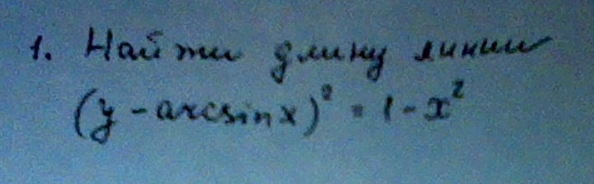 1. Найти длину линии
(y - arcsin x)² = 1 - x²